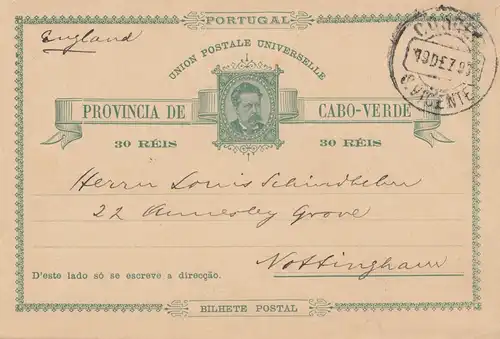 PORTUGAL
England
UNION POSTALE UNIVERSELLE
PROVINCIA DE CABO-VERDE
30 RÉIS 30 RÉIS
S. VICENTE
Herrn Louis Schindhelm
22 Annesley Grove
Nottingham
D'este lado só se escreve a direcção.
BILHETE POSTAL